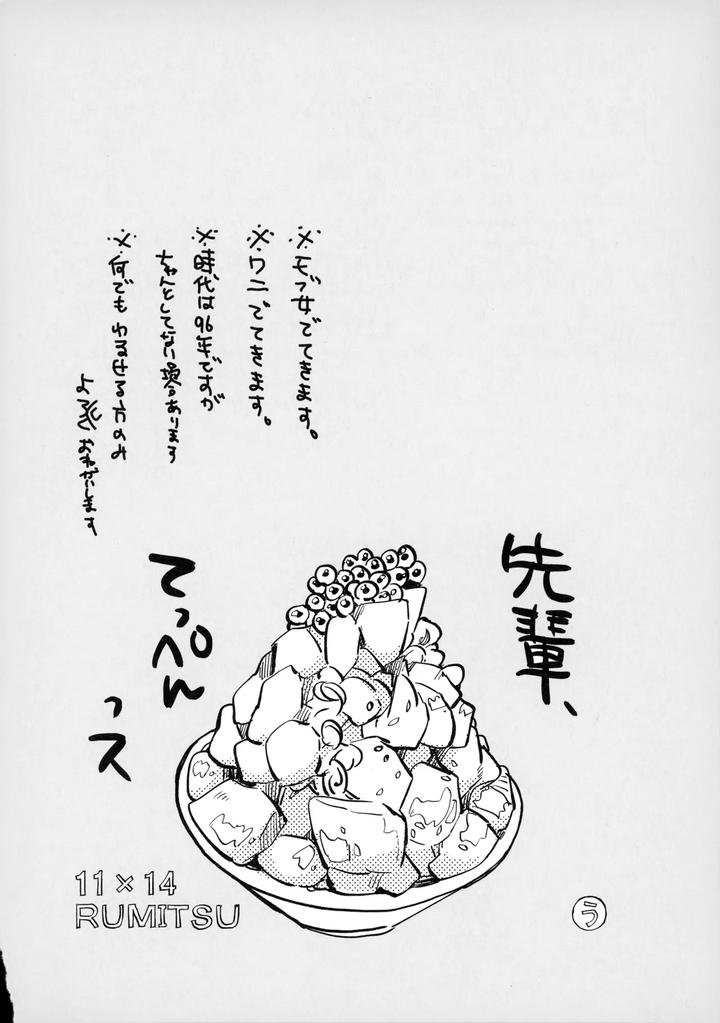 ※モブ女でてきます。
※ワニでてきます。
※時代は96年ですが
ちゃんとしてない場合あります
※何でもゆるせる方のみ
よろしくおねがいします
先輩、
てっぺん
っス
11×14
RUMITSU
う